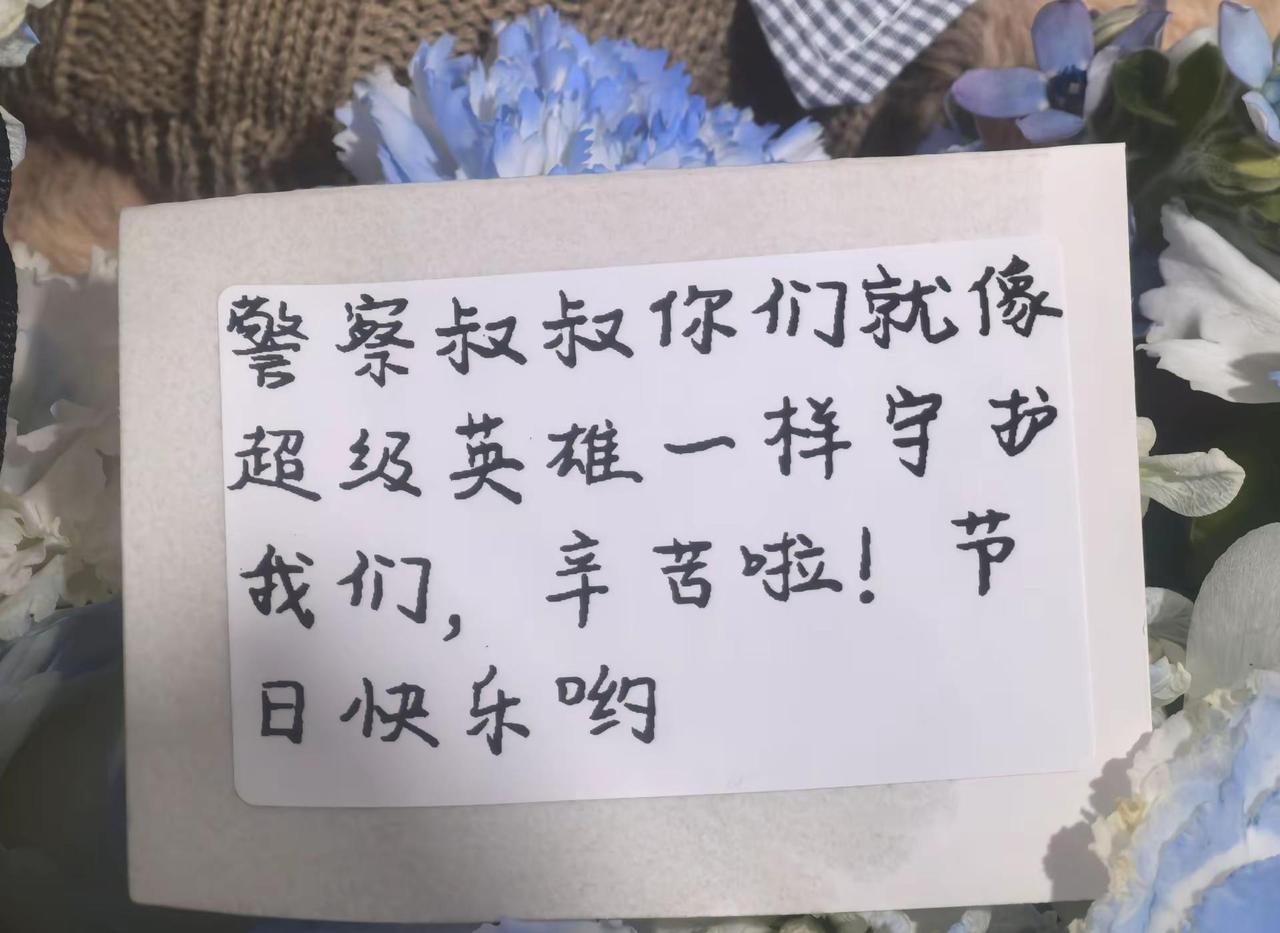 警察叔叔你们就像
超级英雄一样守护
我们，辛苦啦！节
日快乐哟